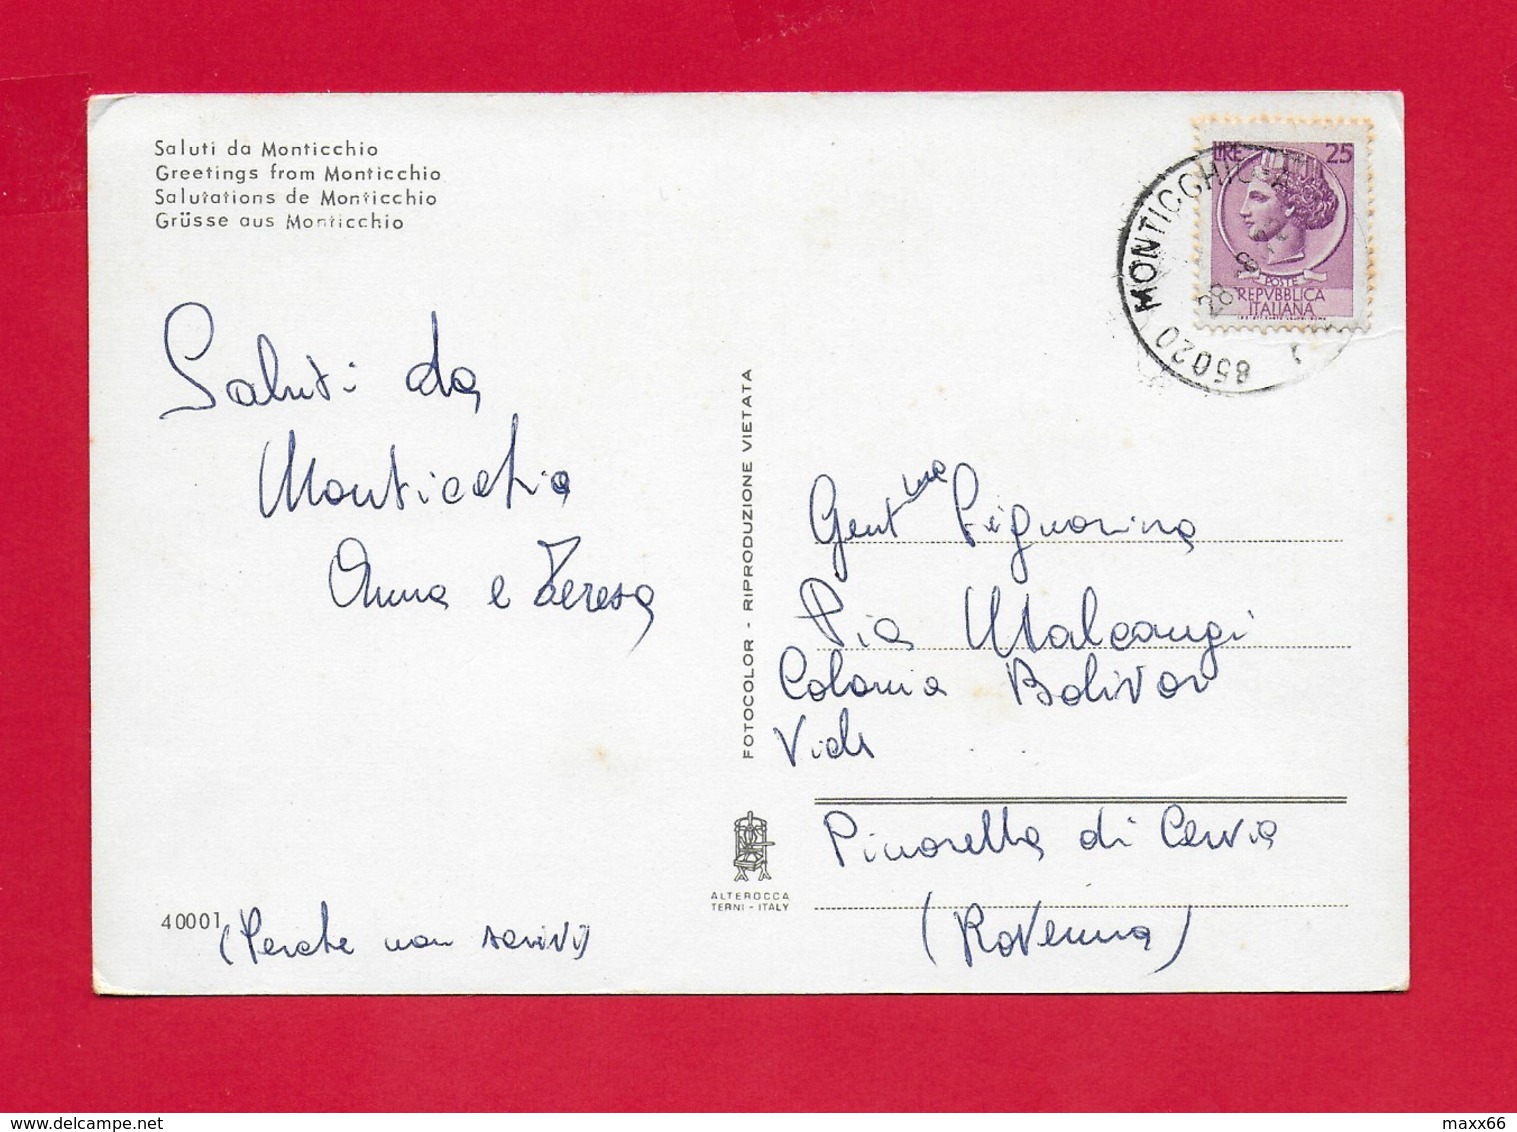 Saluti da Monticchio
Greetings from Monticchio
Salutations de Monticchio
Grüsse aus Monticchio
LIRE 25
POSTE
REPVBBLICA
ITALIANA
85020 MONTICCHIO
28 8
Saluti da
Monticchio
Anna e Teresa
(Perche non scrivi)
40001
FOTOCOLOR - RIPRODUZIONE VIETATA
ALTEROCCA
TERNI - ITALY
Gent.ma Signorina
Pia Malcangi
Colonia Bolivar
Pinarella di Cervia
(Ravenna)
delcampe.net
maxx66